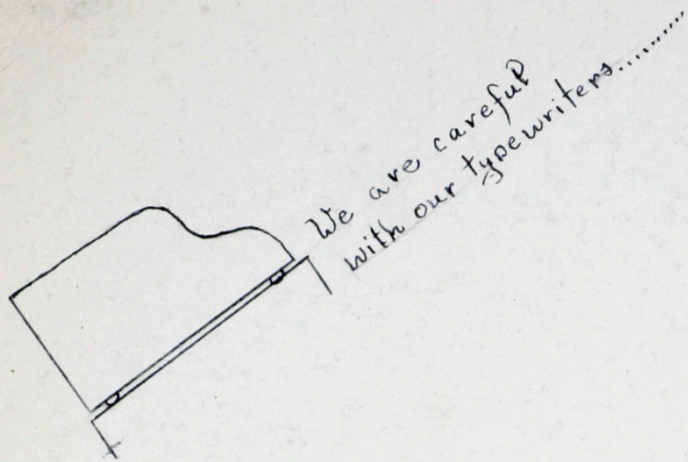 We are careful
with our typewriters.........